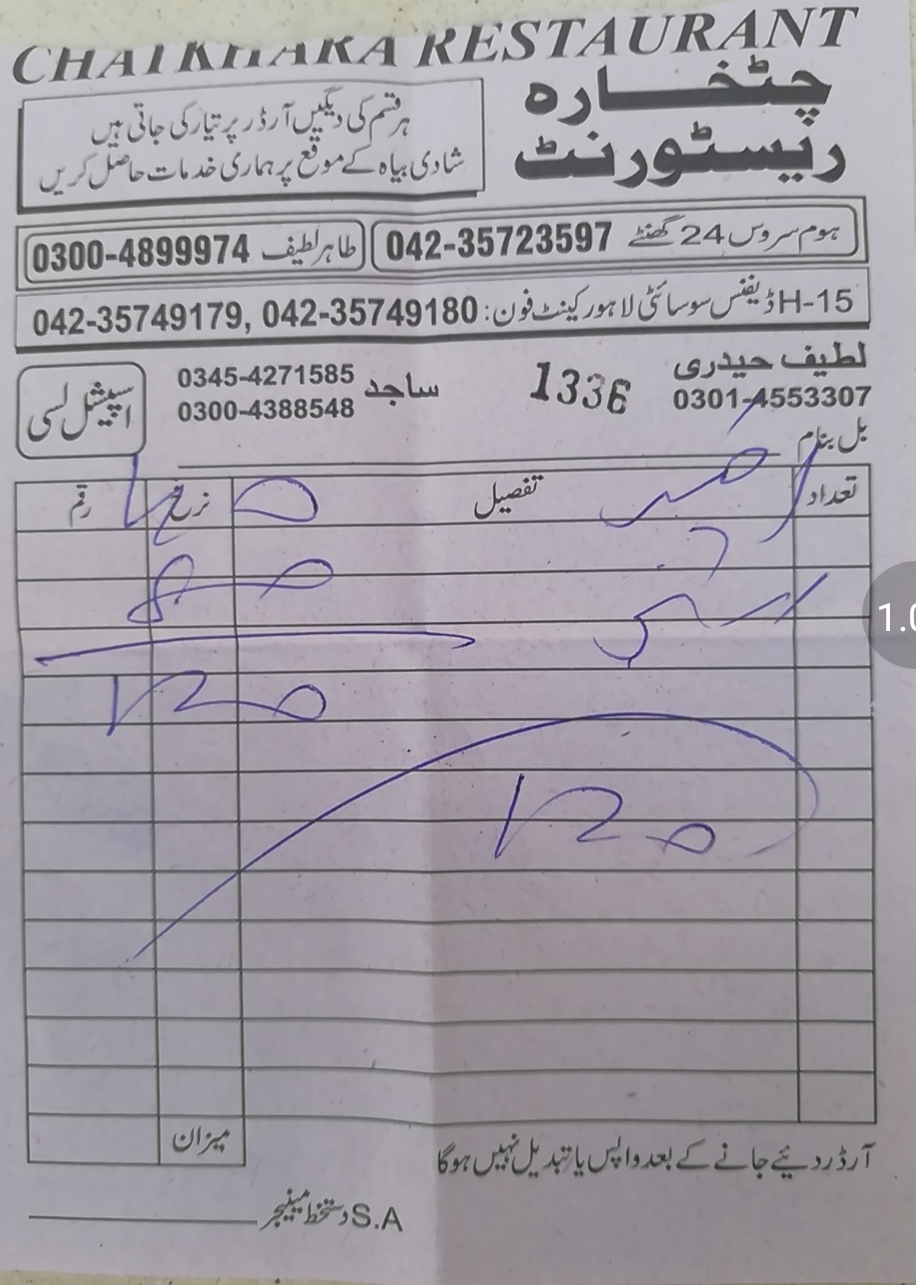 CHATKHARA RESTAURANT
چٹخارہ
ریسٹورنٹ
ہر قسم کی دیگیں آرڈر پر تیار کی جاتی ہیں
شادی بیاہ کے موقع پر ہماری خدمات حاصل کریں
ہوم سروس 24 گھنٹے 042-35723597
طاہر لطیف 0300-4899974
H-15 ڈیفنس سوسائٹی لاہور کینٹ فون: 042-35749180 ,042-35749179
لطیف حیدری
0301-4553307
1336
ساجد 0345-4271585
0300-4388548
اسپیشل لسی
بل بنام
تعداد تفصیل نرخ رقم
میزان
آرڈر دیئے جانے کے بعد واپس یا تبدیل نہیں ہوگا
S.A دستخط مینیجر
1.0